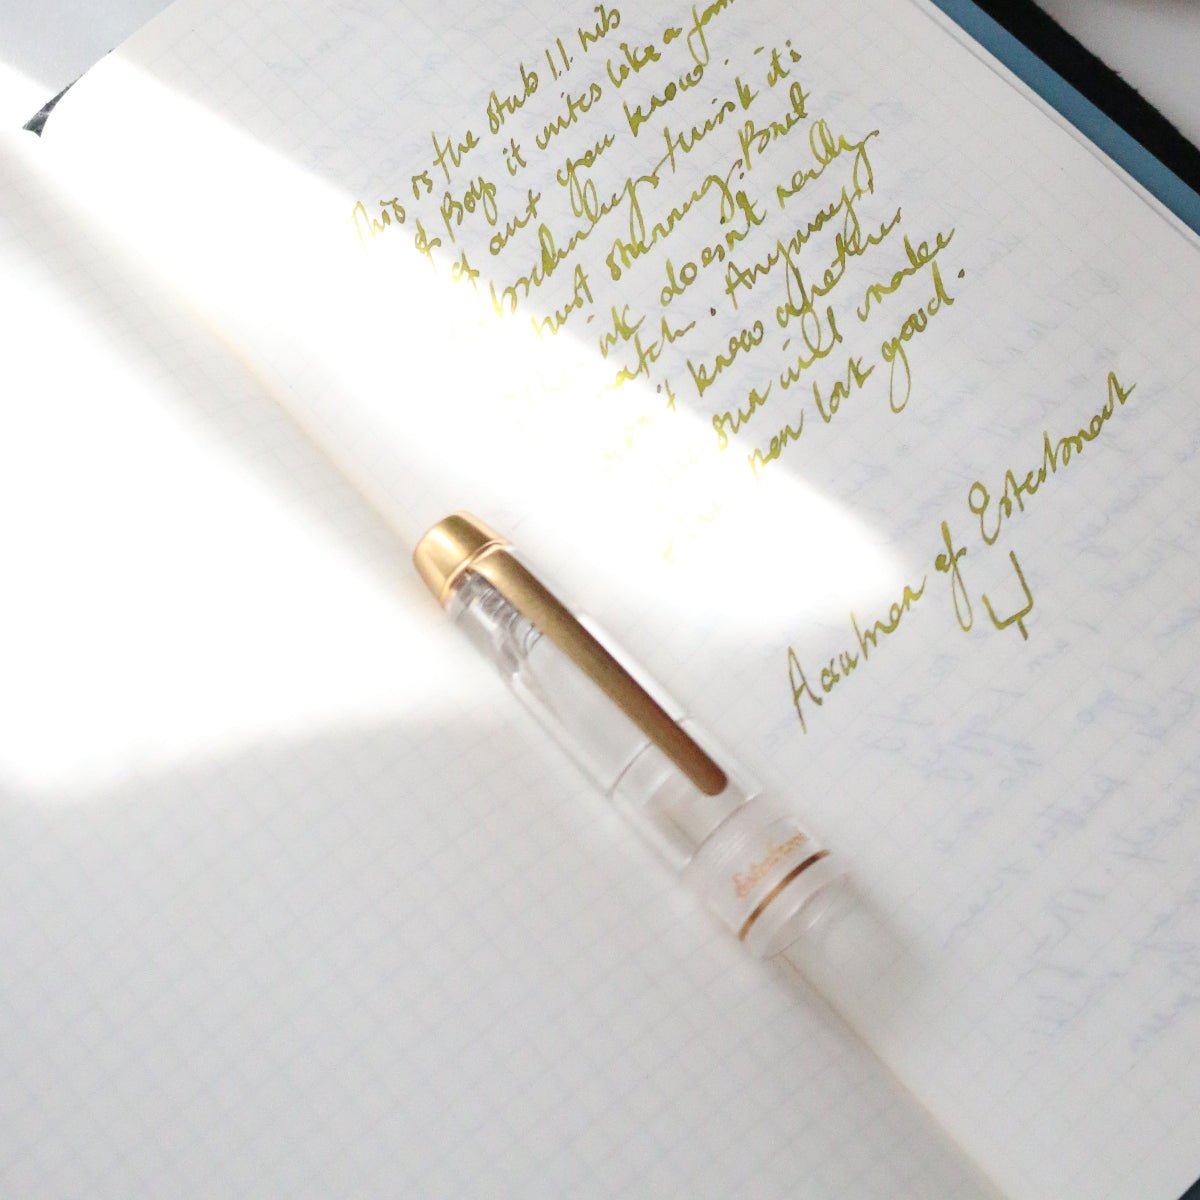 This is the stub 1.1 nib
of Boys it writes like a
of art you know.
think it's
just stunning. But
ink doesn't really
match. Anyways I
don't know whether
sun will make
look good.
of Esterbrook
Esterbrook